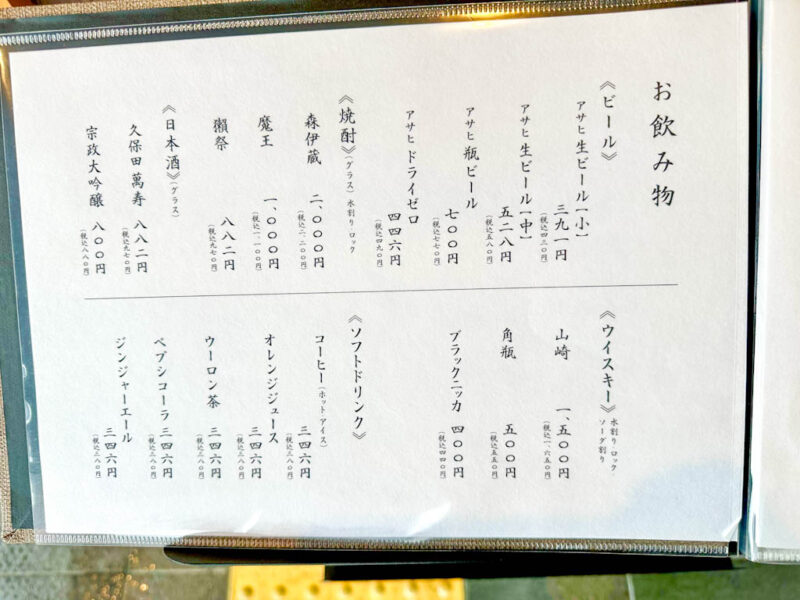 お飲み物
《ビール》
アサヒ 生ビール【小】
三九一円
(税込四三〇円)
アサヒ 生ビール【中】
五二八円
(税込五八〇円)
アサヒ 瓶ビール
七〇〇円
(税込七七〇円)
アサヒ ドライゼロ
四四六円
(税込四九〇円)
《焼酎》(グラス) 水割り・ロック
森伊蔵
二、〇〇〇円
(税込二、二〇〇円)
魔王
一、〇〇〇円
(税込一、一〇〇円)
獺祭
八八二円
(税込九七〇円)
《日本酒》(グラス)
久保田 萬寿
八八二円
(税込九七〇円)
宗政大吟醸
八〇〇円
(税込八八〇円)
《ウイスキー》水割り・ロック・
ソーダ割り
山崎
一、五〇〇円
(税込一、六五〇円)
角瓶
五〇〇円
(税込五五〇円)
ブラックニッカ
四〇〇円
(税込四四〇円)
《ソフトドリンク》
コーヒー(ホット アイス)
三四六円
(税込三八〇円)
オレンジジュース
三四六円
(税込三八〇円)
ウーロン茶
三四六円
(税込三八〇円)
ペプシコーラ
三四六円
(税込三八〇円)
ジンジャーエール
三四六円
(税込三八〇円)